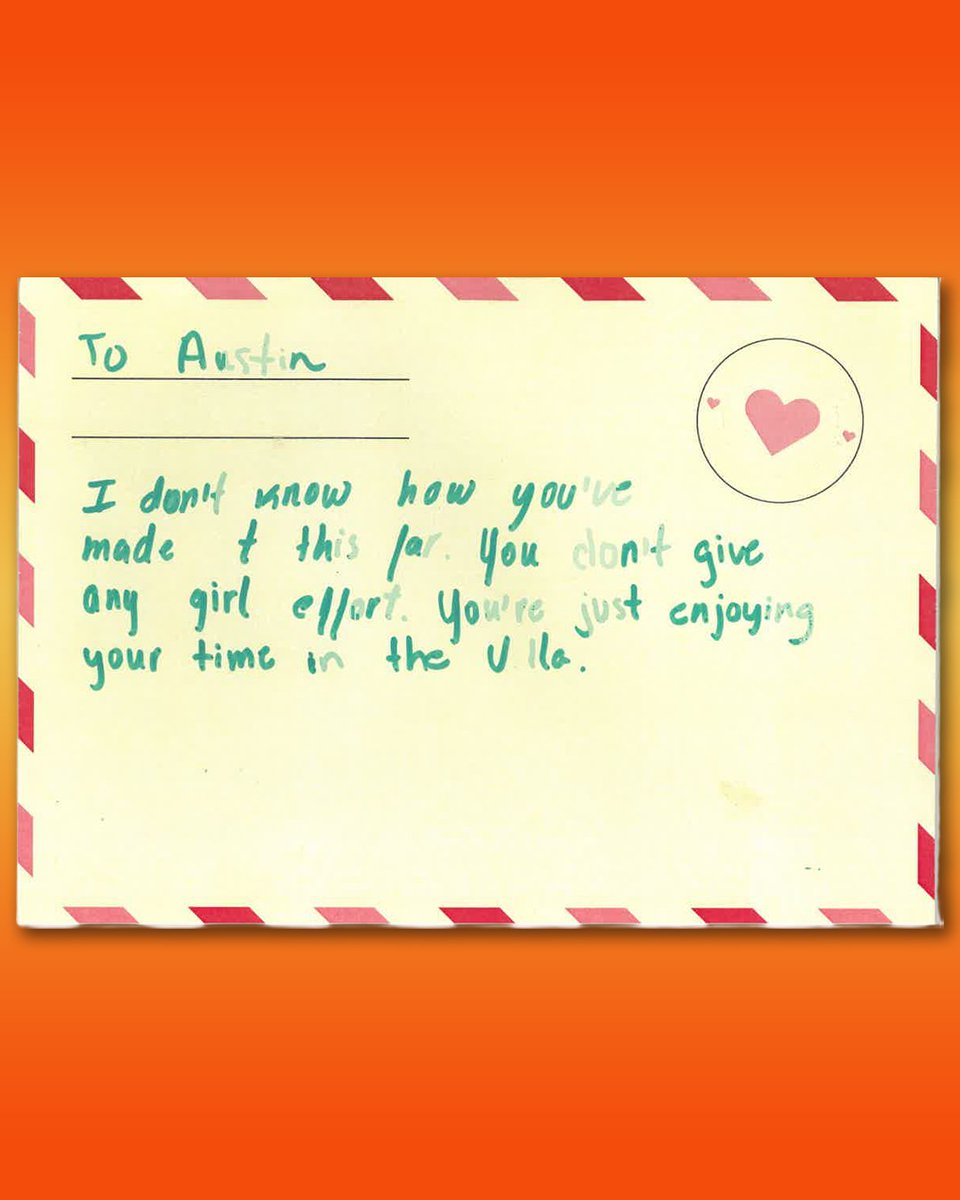 To Austin
I don't know how you've
made t this far. You don't give
any girl effort. You're just enjoying
your time in the V lla.